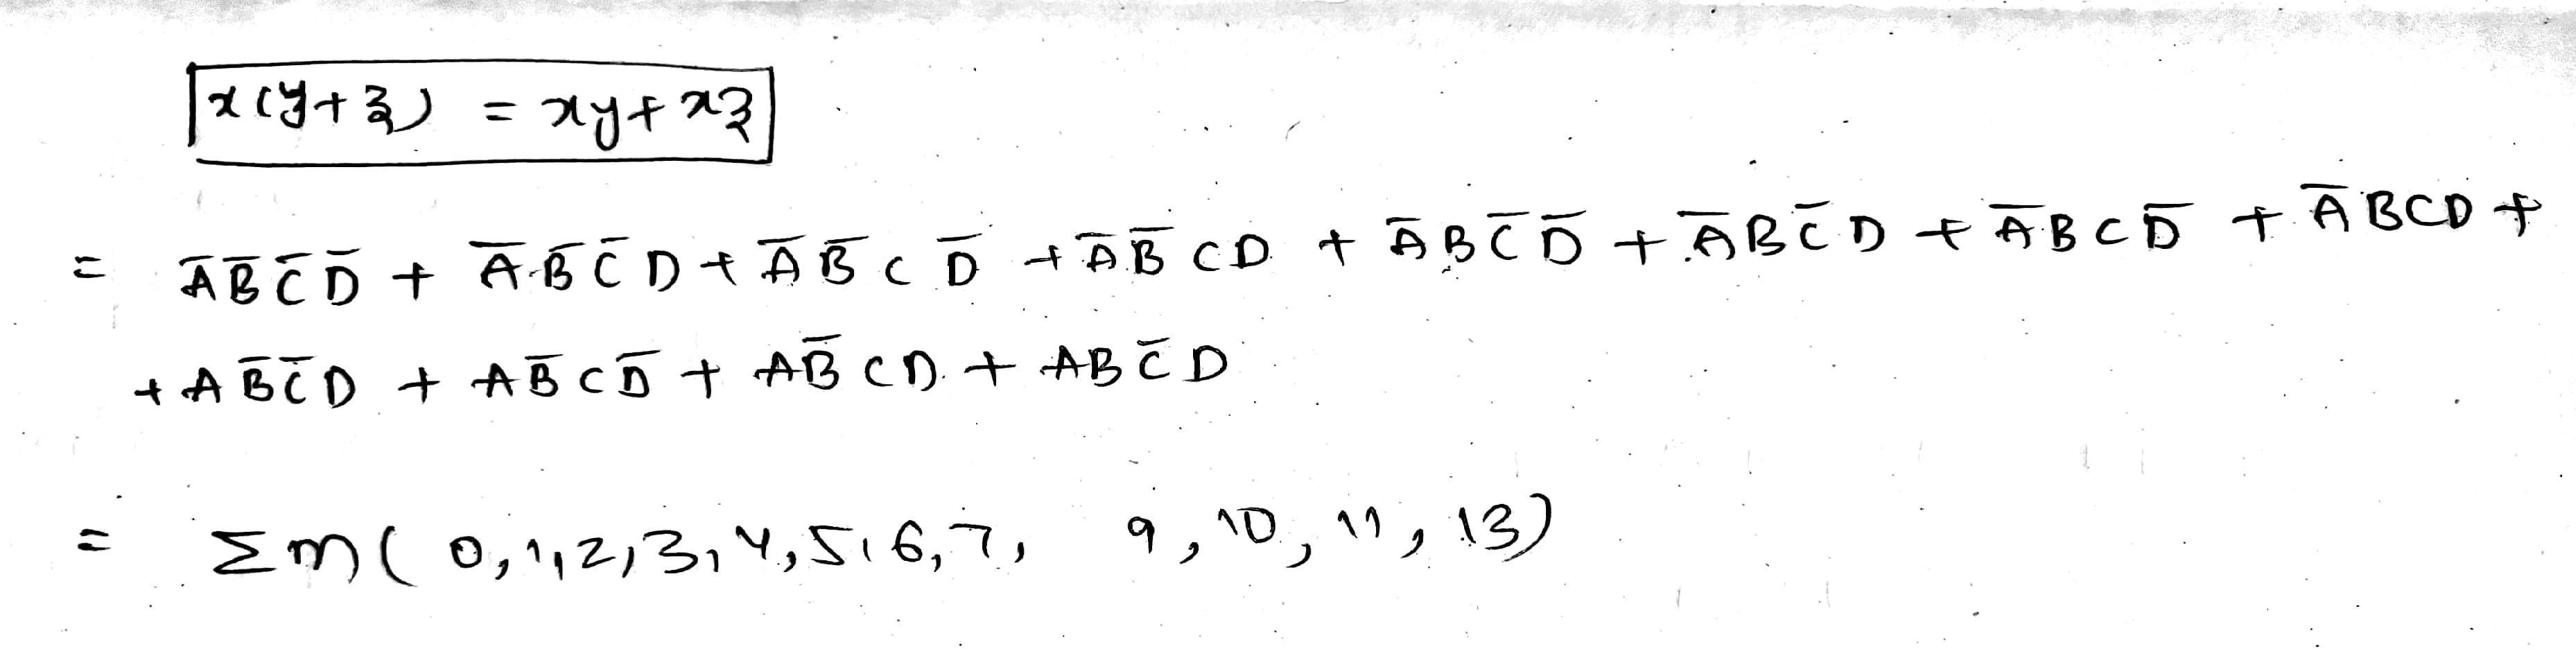 x(y+z) = xy+xz
= A̅B̅C̅D̅ + A̅B̅C̅D + A̅B̅CD̅ + A̅B̅CD + A̅BC̅D̅ + A̅BC̅D + A̅BCD̅ + A̅BCD +
+ AB̅C̅D + AB̅CD̅ + AB̅CD + ABC̅D
= Σm(0,1,2,3,4,5,6,7, 9,10,11,13)